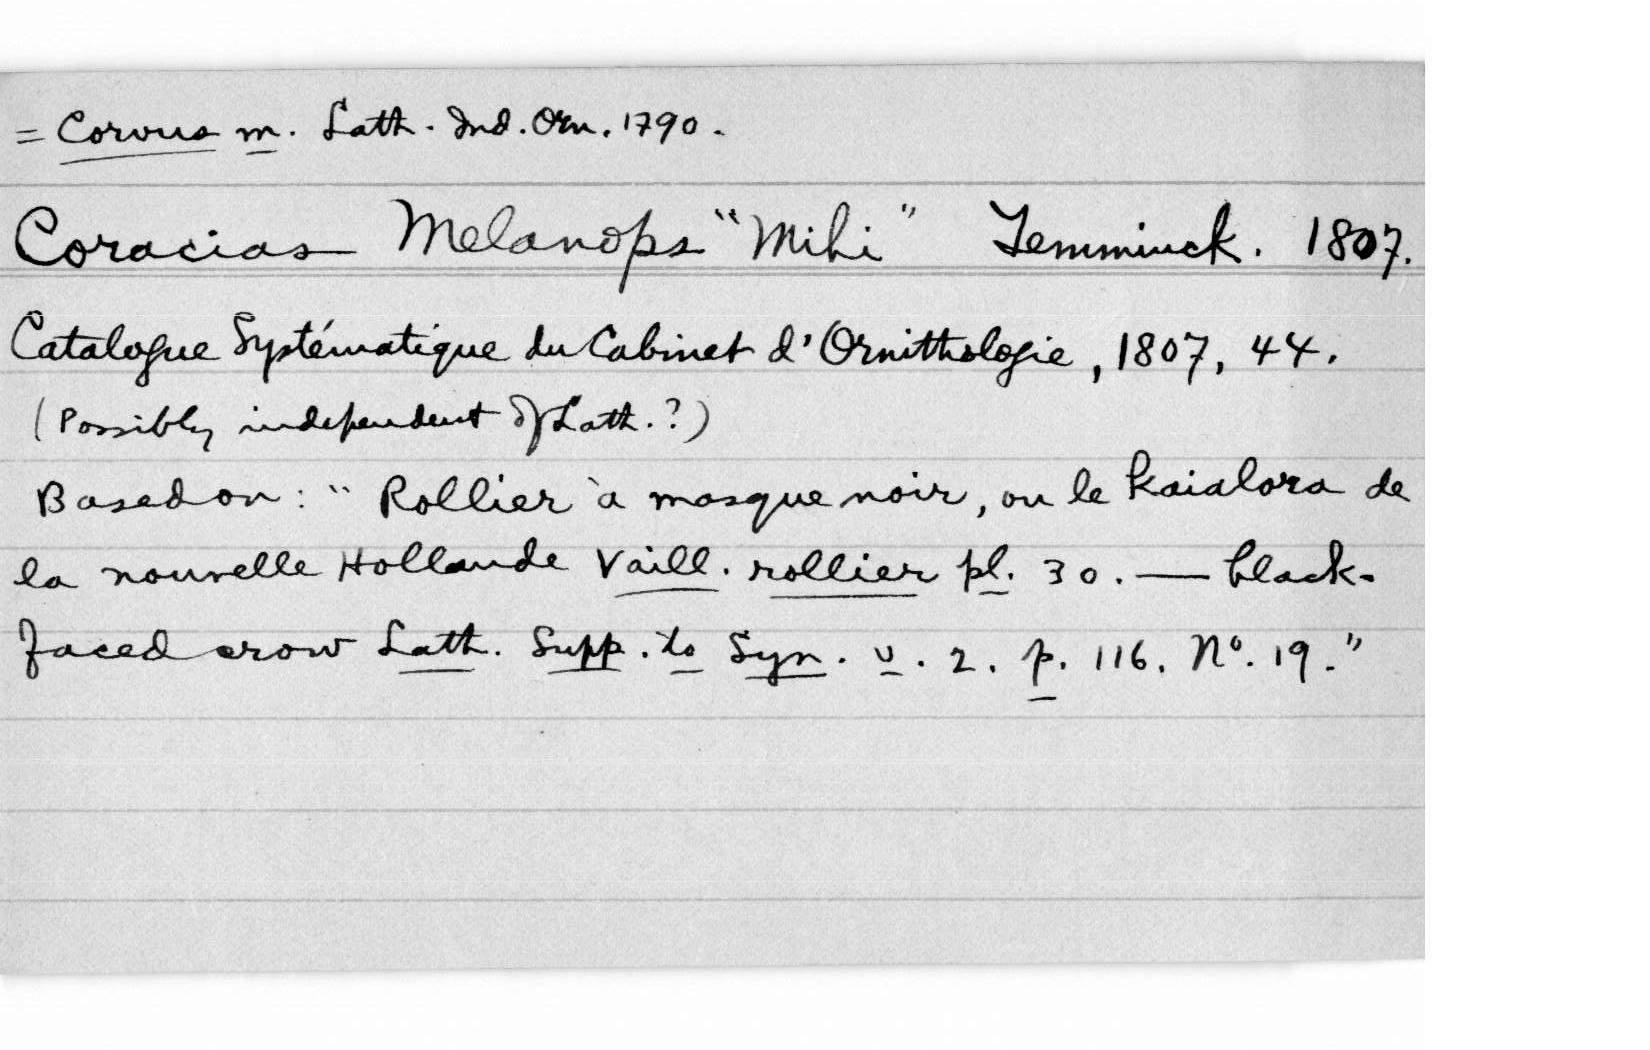 = Corvus m. Lath. Ind. Orn. 1790.
Coracias Melanops "Mihi" Temminck. 1807.
Catalogue Systématique du Cabinet d'Ornithologie, 1807, 44.
(Possibly independent of Lath.?)
Based on: "Rollier à masque noir, ou le kaialora de
la nouvelle Hollande Vaill. rollier pl. 30. — black-
faced crow Lath. Supp. to Syn. v. 2. p. 116. No. 19."